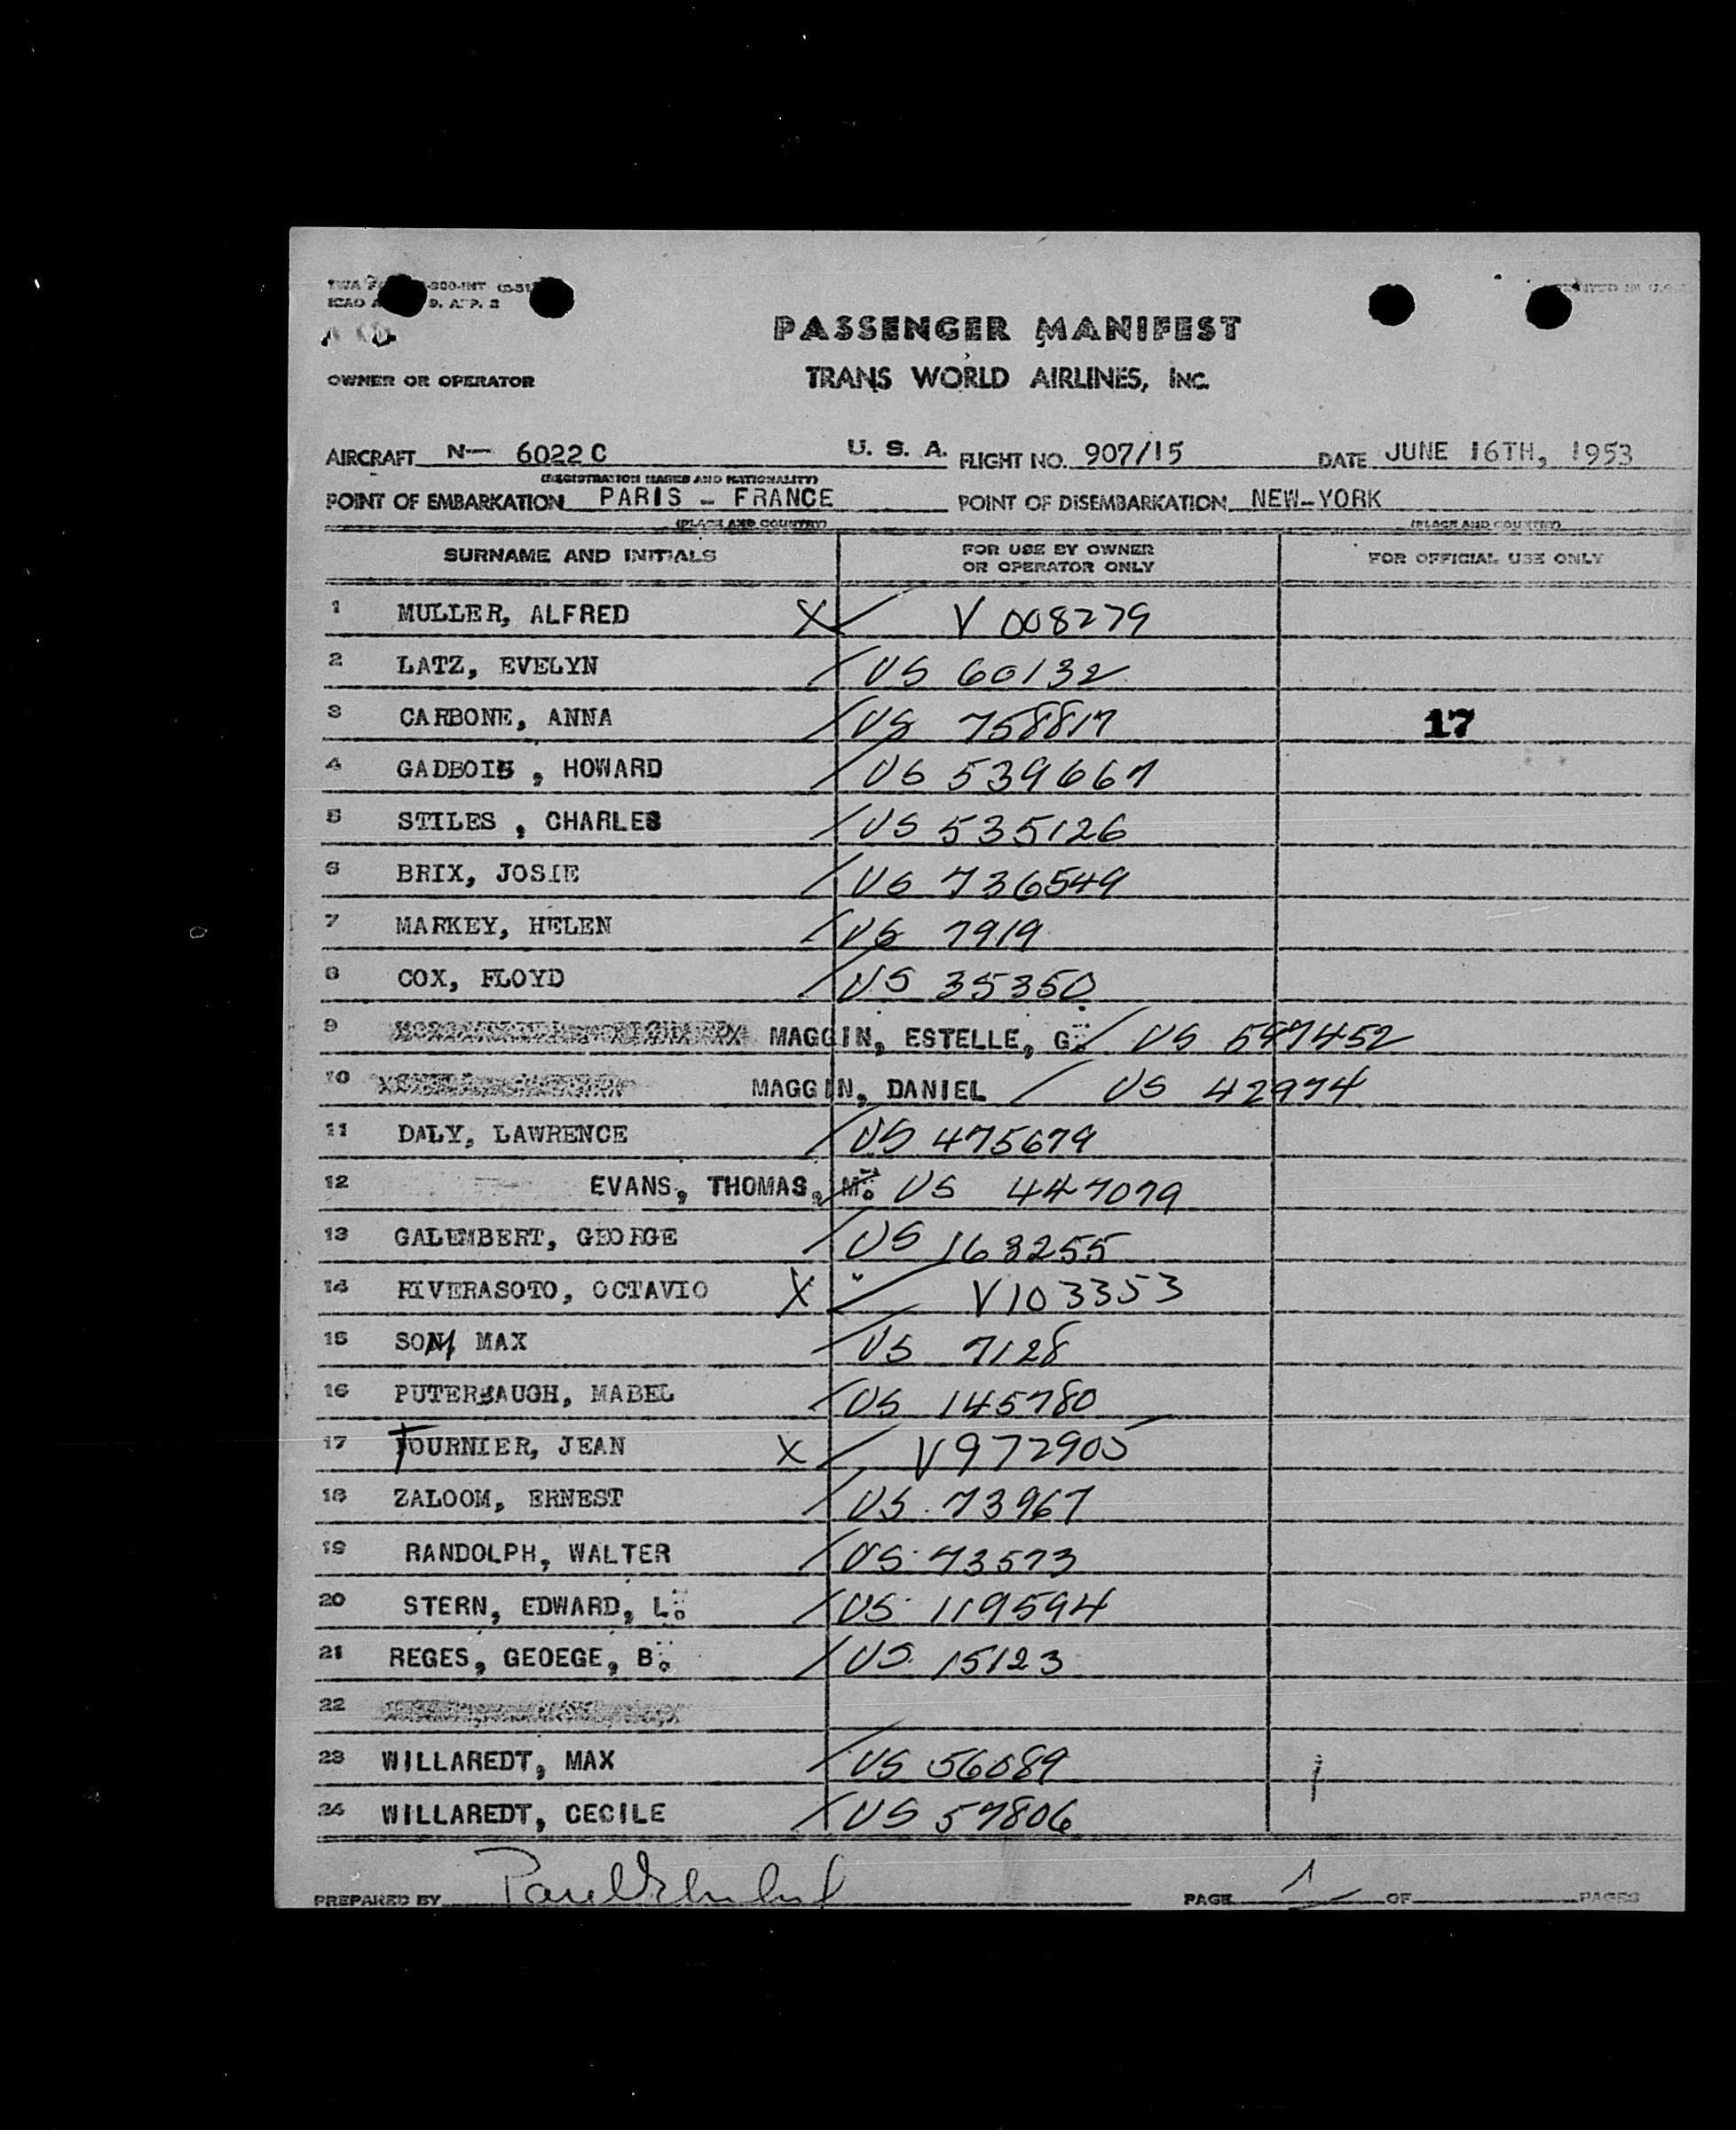 ICAO A 9. APP. 2
PASSENGER MANIFEST
OWNER OR OPERATOR TRANS WORLD AIRLINES, INC.
AIRCRAFT N— 6022 C U. S. A. FLIGHT NO. 907/15 DATE JUNE 16TH, 1953
(REGISTRATION MARKS AND NATIONALITY)
POINT OF EMBARKATION PARIS - FRANCE POINT OF DISEMBARKATION NEW-YORK
(PLACE AND COUNTRY) (PLACE AND COUNTRY)
SURNAME AND INITIALS FOR USE BY OWNER OR OPERATOR ONLY FOR OFFICIAL USE ONLY
1 MULLER, ALFRED X V 008279
2 LATZ, EVELYN US 60132
3 CARBONE, ANNA US 758817 17
4 GADBOIS , HOWARD US 539667
5 STILES , CHARLES US 535126
6 BRIX, JOSIE US 736549
7 MARKEY, HELEN US 7919
8 COX, FLOYD US 35350
9 MAGGIN, ESTELLE, G. US 597452
10 MAGGIN, DANIEL US 42974
11 DALY, LAWRENCE US 475679
12 EVANS, THOMAS, M. US 447079
13 GALEMBERT, GEORGE US 168255
14 RIVERASOTO, OCTAVIO X V103353
15 SON, MAX US 7128
16 PUTERBAUGH, MABEL US 145780
17 FOURNIER, JEAN X V972905
18 ZALOOM, ERNEST US 73967
19 RANDOLPH, WALTER US 73573
20 STERN, EDWARD, L. US 119594
21 REGES, GEOEGE, B. US 15123
22
23 WILLAREDT, MAX US 56089
24 WILLAREDT, CECILE US 57806
PREPARED BY PAGE 1 OF PAGES